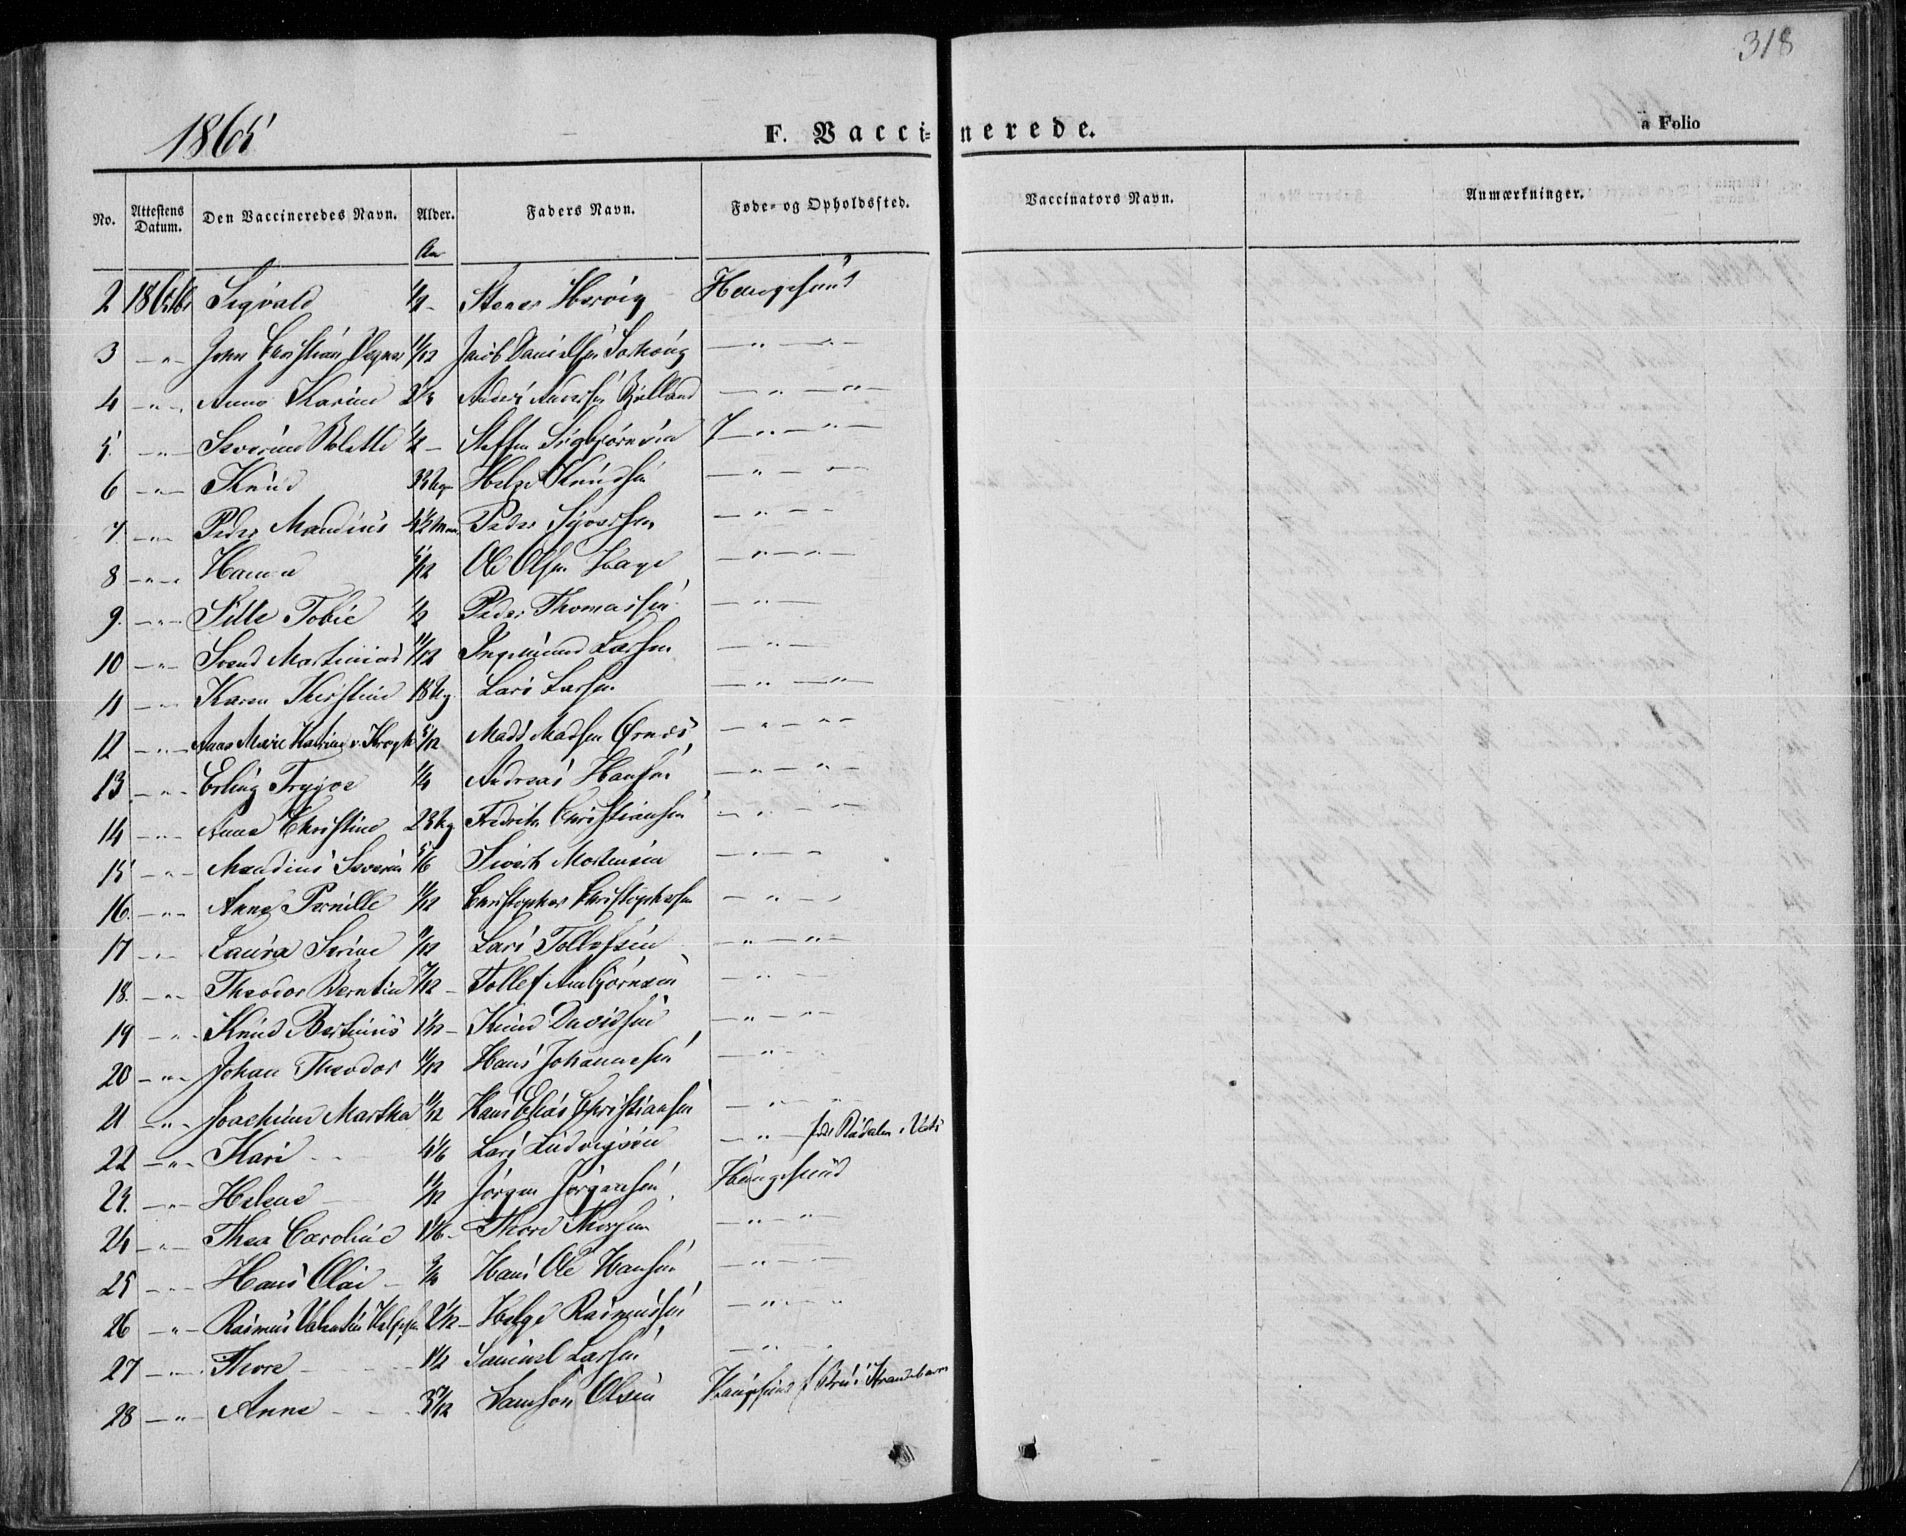 318
1865
F. Vaccinerede.
a Folio
No. Attestens Datum. Den Vaccineredes Navn. Alder. Faders Navn. Føde- og Opholdssted. Vaccinators Navn. Anmærkninger.
Aar
2 Sigvald 1/2 - Stener Hervig Haugesund
3 - " - John Christian Jacob Danielsen - " - " -
4 - " - Anna Karine 2 1/3 Anders Andersen Bjelland - " - " -
5 - " - Severine Bolette Steffen Sigbjørnsen - " - " -
6 - " - Knud Helge Knudsen - " - " -
7. - " - Peder Mandius Peder Syversen - " - " -
8 - " - Hanna 5/12 Ole Olsen Hage - " - " -
9. - " - Sille Tobie 1/2 Peder Thomassen - " -
10 - " - Svend Martinius 11/12 Ingemund Larsen - " -
11 - " - Karen Kirstine Lars Larsen - " - " -
12 - " - Anna Marie Katrine v. Krogh 5/12 Mads Madsen Ørnes - " - " -
13 - " - Erling Trygve 1/4 Andreas Hansen - " - " -
14 - " - Anne Christine Fredrik Christiansen - " - " -
15 - " - Mandius Severin 5/6 Sivert Mortensen - " - " -
16. - " - Anne Pernille 11/12 Christopher Christophersen - " - " -
17 - " - Laura Serine Lars Tollefsen - " - " -
18. - " - Theodor Berntin 7/12 - Tollef Ambjørnsen - " - " -
19 - " - Knud Bertinius Knud Davidsen - " - " -
20 - " - Johan Theodor 11/12 Hans Johannesen - " -
21 - " - Joachime Martha 11/12 Hans Elias Christiansen - " - " -
22 - " - Kari 4 1/6 Lars Ludvigsen - " - i Vats
23. - " - Helene 11/12 Jørgen Jørgensen Haugesund
24 - " - Thea Caroline 1 1/6 - Thore Thorsen - " - " -
25 - " - Hans Olai - Hans Ole Hansen - " -
26 - " - Rasmus Valentin Helgesen 2 1/12 - Helge Rasmussen - " - " -
27 - " - Thore 1 1/2 Samuel Larsen - " -
28 - " - Anne Samson Olsen Haugesund f. i Strandebarm